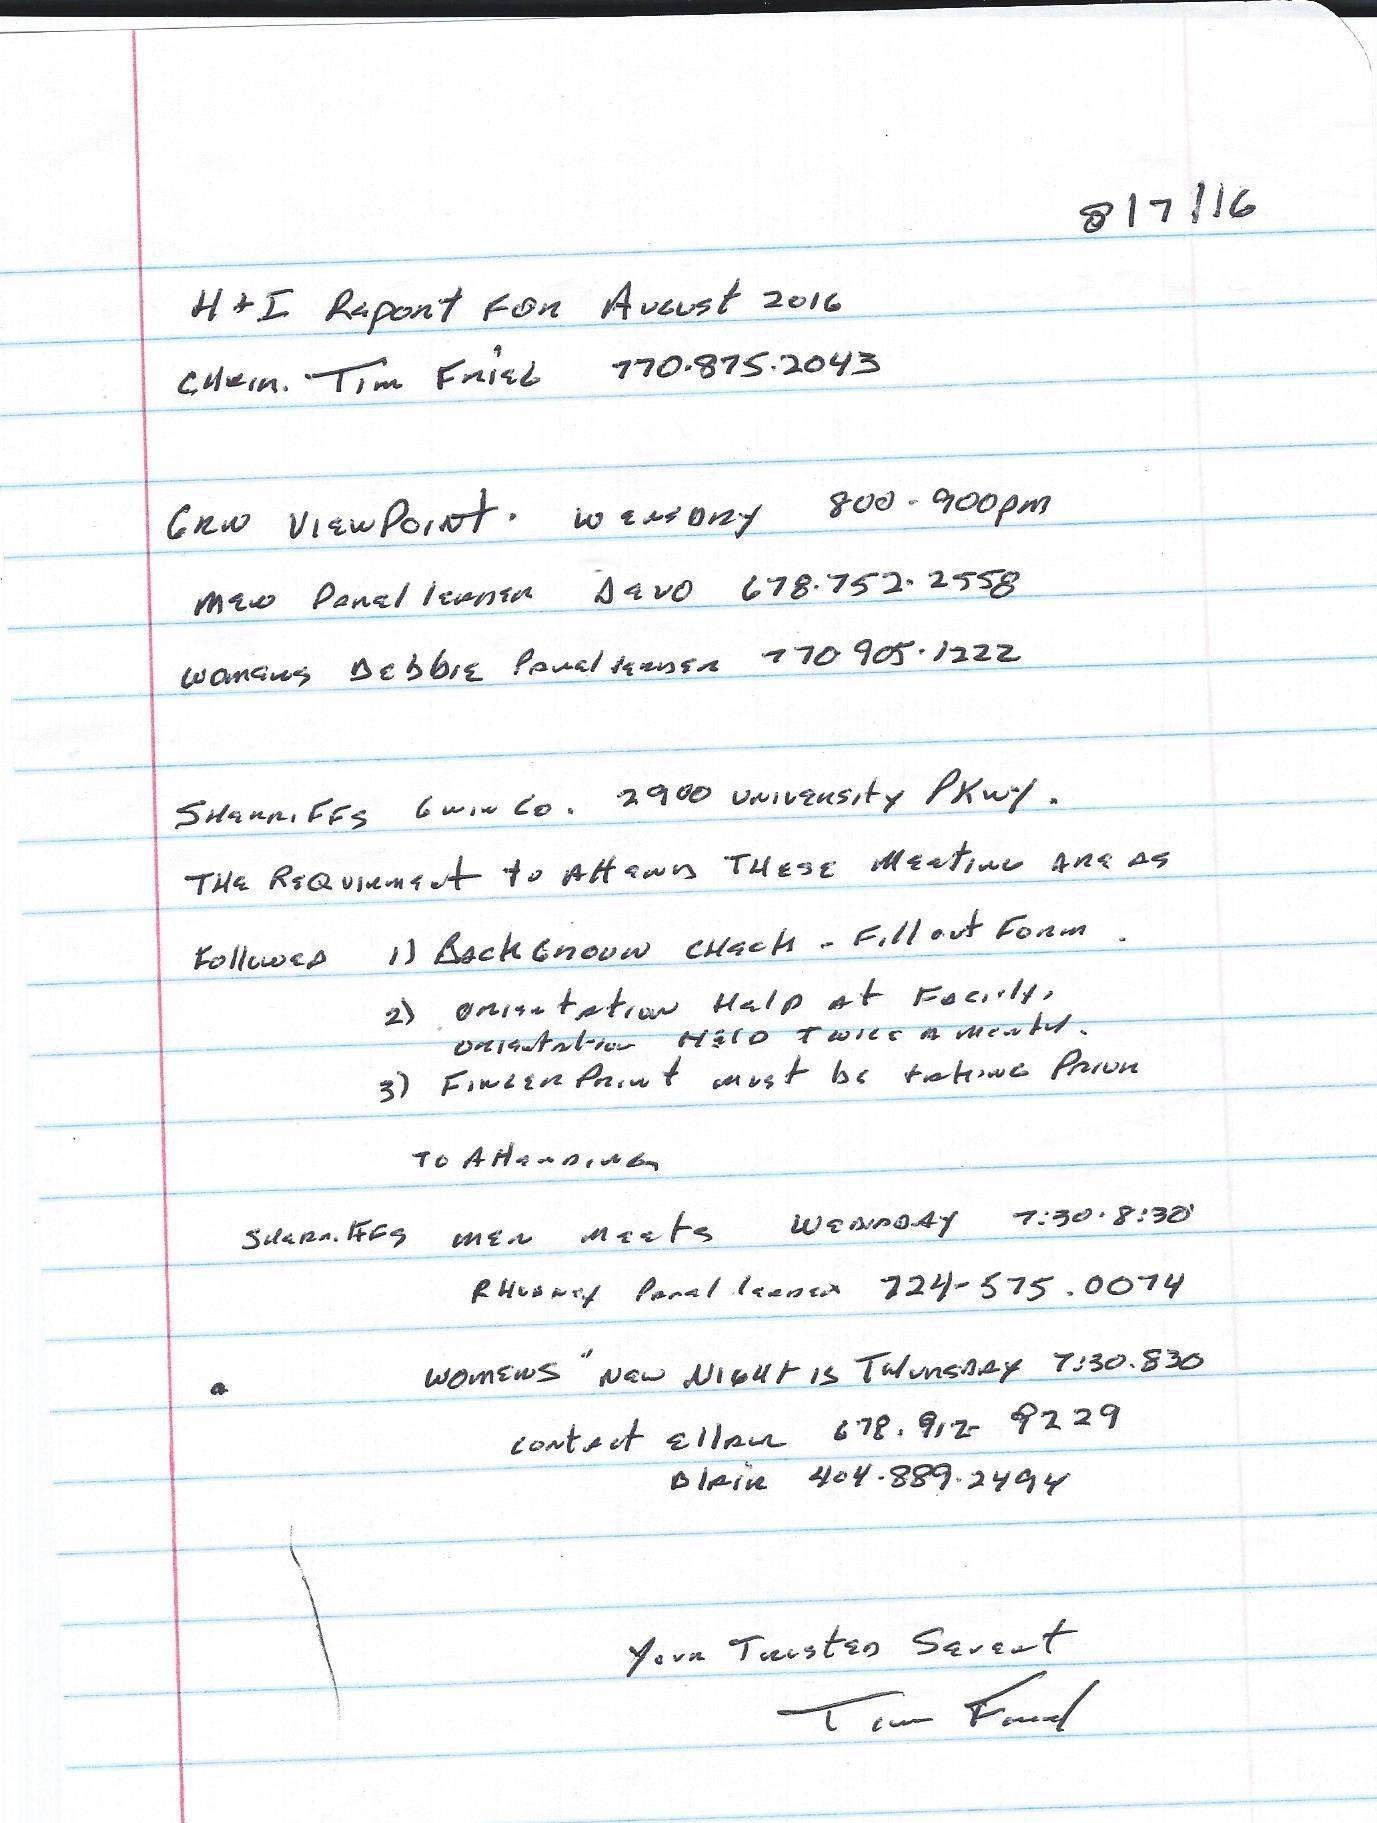 8/7/16
H+I Report For August 2016
Chair. Tim Friel 770.875.2043
GRN ViewPoint. Wensday 800-900pm
Men Panel leader Davo 678.752.2558
Womens Debbie Panel leader 770 905.1222
Sherriffs Gwin Co. 2900 University PKwy.
The Requirment to Attend These Meeting Are as
Followed 1) BackGroun Check - Fill out Form.
2) Orientation Help at Facility.
Orientation Held Twice a Month.
3) FingerPrint must be taking Prior
To Attending
Sherriffs men meets Wednsday 7:30-8:30
Rhudney Panel leader 724-575.0074
Womens "New Night is Thursday 7:30.830
contact Ellen 678.912-9229
Blair 404.889.2494
Your Trusted Servent
Tim Friel